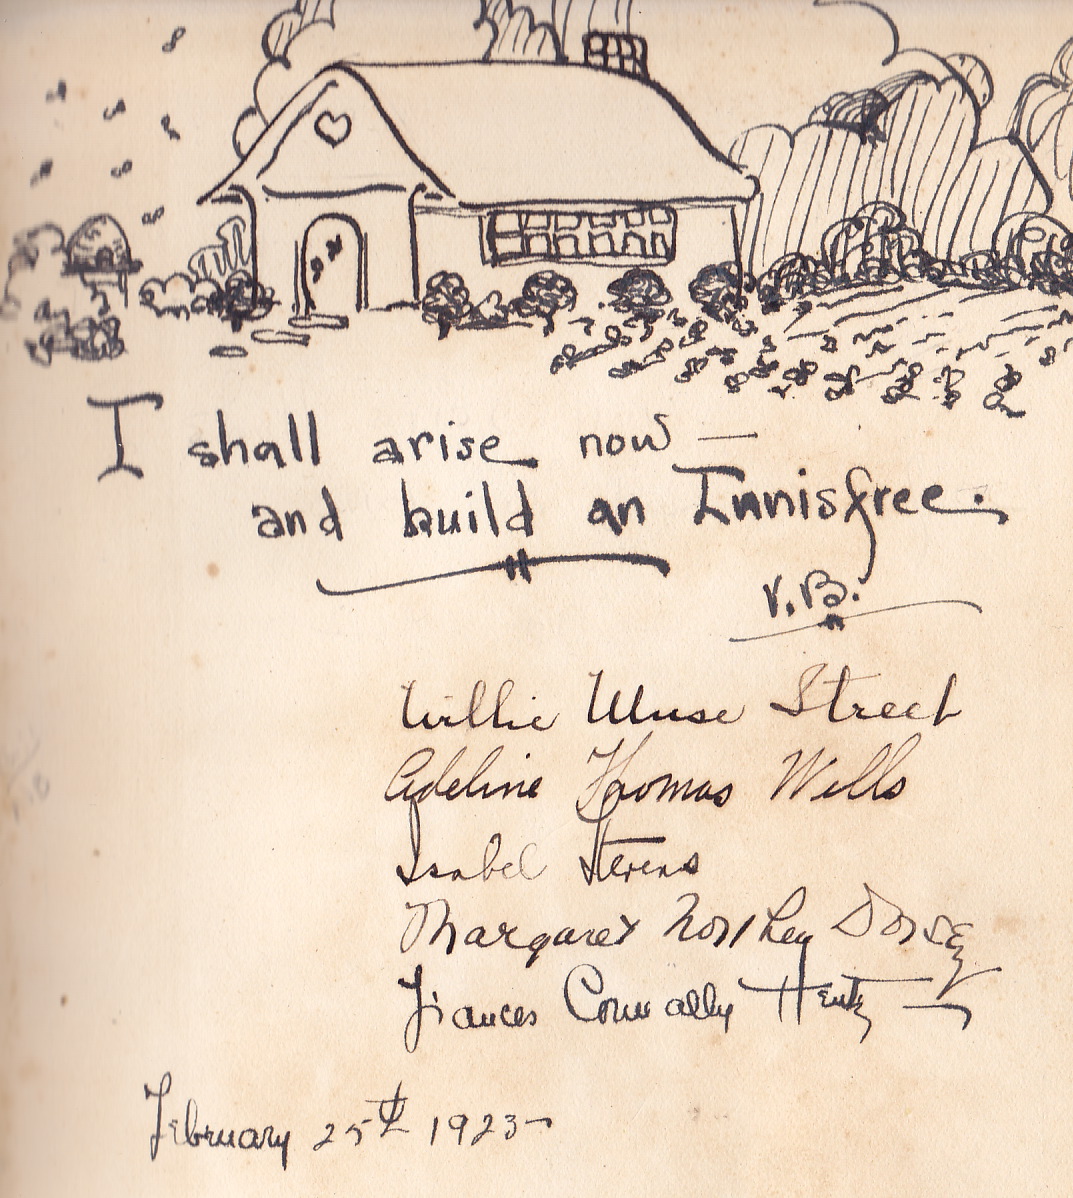 I shall arise now —
and build an Innisfree.
V.B.
Willie Muse Street
Adeline Thomas Wells
Isabel Stevens
Margaret Northey Dorsey
Frances Connally Hentz
February 25th 1923